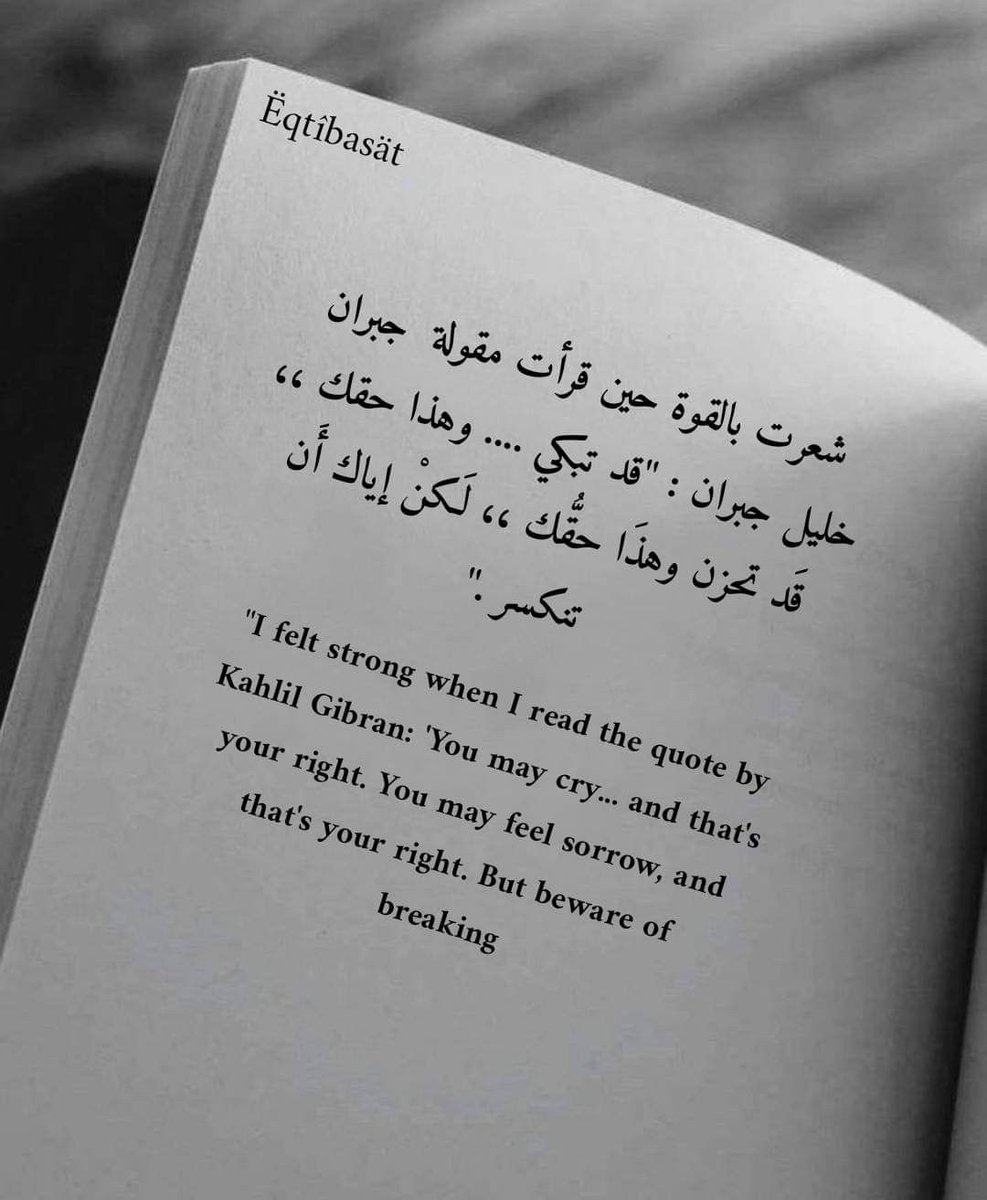 Ëqtîbasät
شعرت بالقوة حين قرأت مقولة جبران
خليل جبران : "قد تبكي .... وهذا حقك ،،
قَد تحزن وهذَا حقُّك ،، لَكنْ إياك أَن
تنكسر ."
"I felt strong when I read the quote by
Kahlil Gibran: 'You may cry... and that's
your right. You may feel sorrow, and
that's your right. But beware of
breaking